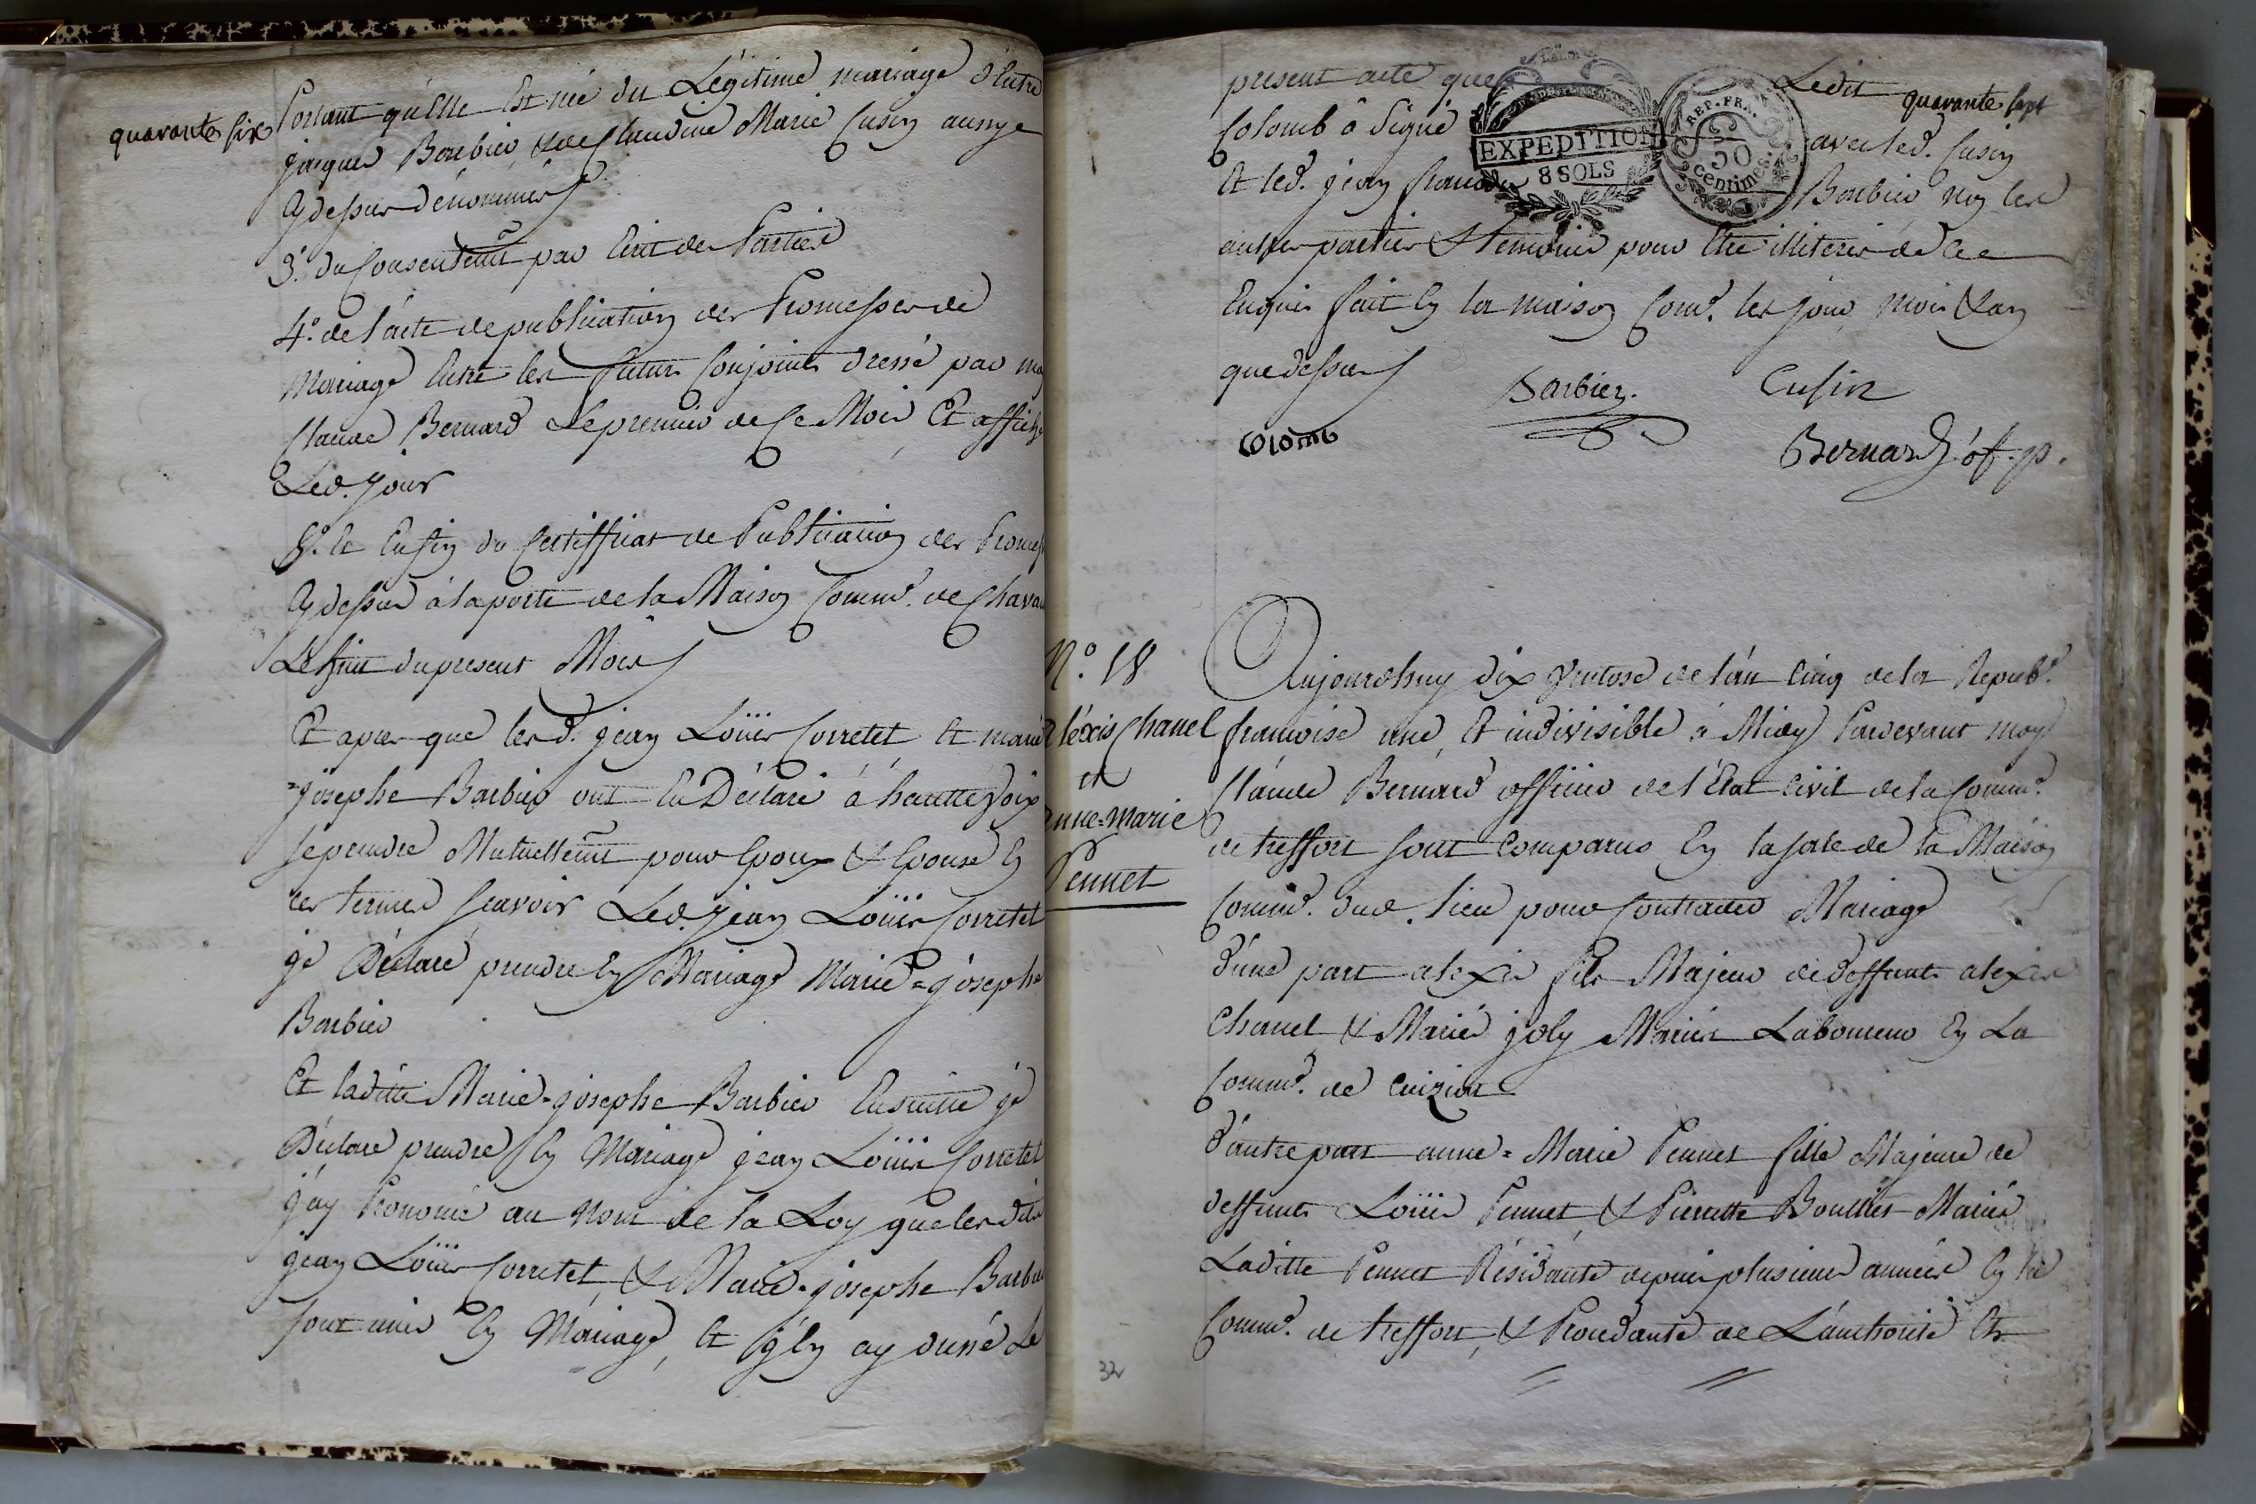 quarante six
Portant qu'Elle Est née du Légitime mariage d'Entre
jacques Barbier, & de Claudine Marie Cusin aussy
Cydessus dénommés
3.° du Consentemt par Ecrit des Parties
4.° de l'acte de publication des Promesses de
Mariage Entre les futurs Conjoints dressé par moy
Claude Bernard Le premier de Ce Mois Et affiché
Led. Jour
5.° Et Enfin du Certifficat de Publication des
Cydessus à la porte de la Maison Commd. de
Le huit du present Mois
Et apres que lesd. jean Loüis Corretet Et marie
=josephe Barbier ont Eu Déclaré à hautte voix
se prendre Mutuellemt pour Epoux & Epouse En
ces termes Scavoir Led. jean Loüis Corretet
je Déclare prendre En Mariage Marie=josephe
Barbier
Et laditte Marie-josephe Barbier Ensuitte je
Déclare prendre En Mariage jean Loüis Corretet
j'ay Prononcé au Nom de la Loy que lesdits
jean Loüis Corretet, & Marie-josephe Barbier
sont unis En Mariage, Et j'En ay dressé Le
present acte que Ledit
quarante sept
Colomb à Signé avec led. Cusin
Et led. jean Barbier non les
autres parties & temoins pour Etre illiteres de ce
Enquis fait En la maison Comd. les jour, mois & an
que dessus
EXPEDITION
8 SOLS
REP. FR.
50
centimes
Barbier. Cusin
Colomb
Bernard of. p.
N.° 18
Alexis Chanel
et
Anne=Marie
Pennet
Aujourdhuy dix Ventose de l'an Cinq de la Republ.
francoise une, Et indivisible à Midy Pardevant moy
Claude Bernard officier de l'Etat Civil de la Commd.
de treffort sont Comparus En la sale de la Maison
Commd. dud. Lieu pour Contracter Mariage
d'une part alexis fils Majeur de deffunts alexis
Chanel & Marie joly Mariés Laboureur En La
Commd. de Cuiziat
d'autre part anne=Marie Pennet fille Majeure de
deffunts Loüis Pennet & Pierrette Mariés
Laditte Pennet Résidante depuis plusieurs années En la
Commd. de treffort, & Procedante de L'authorité Et
32